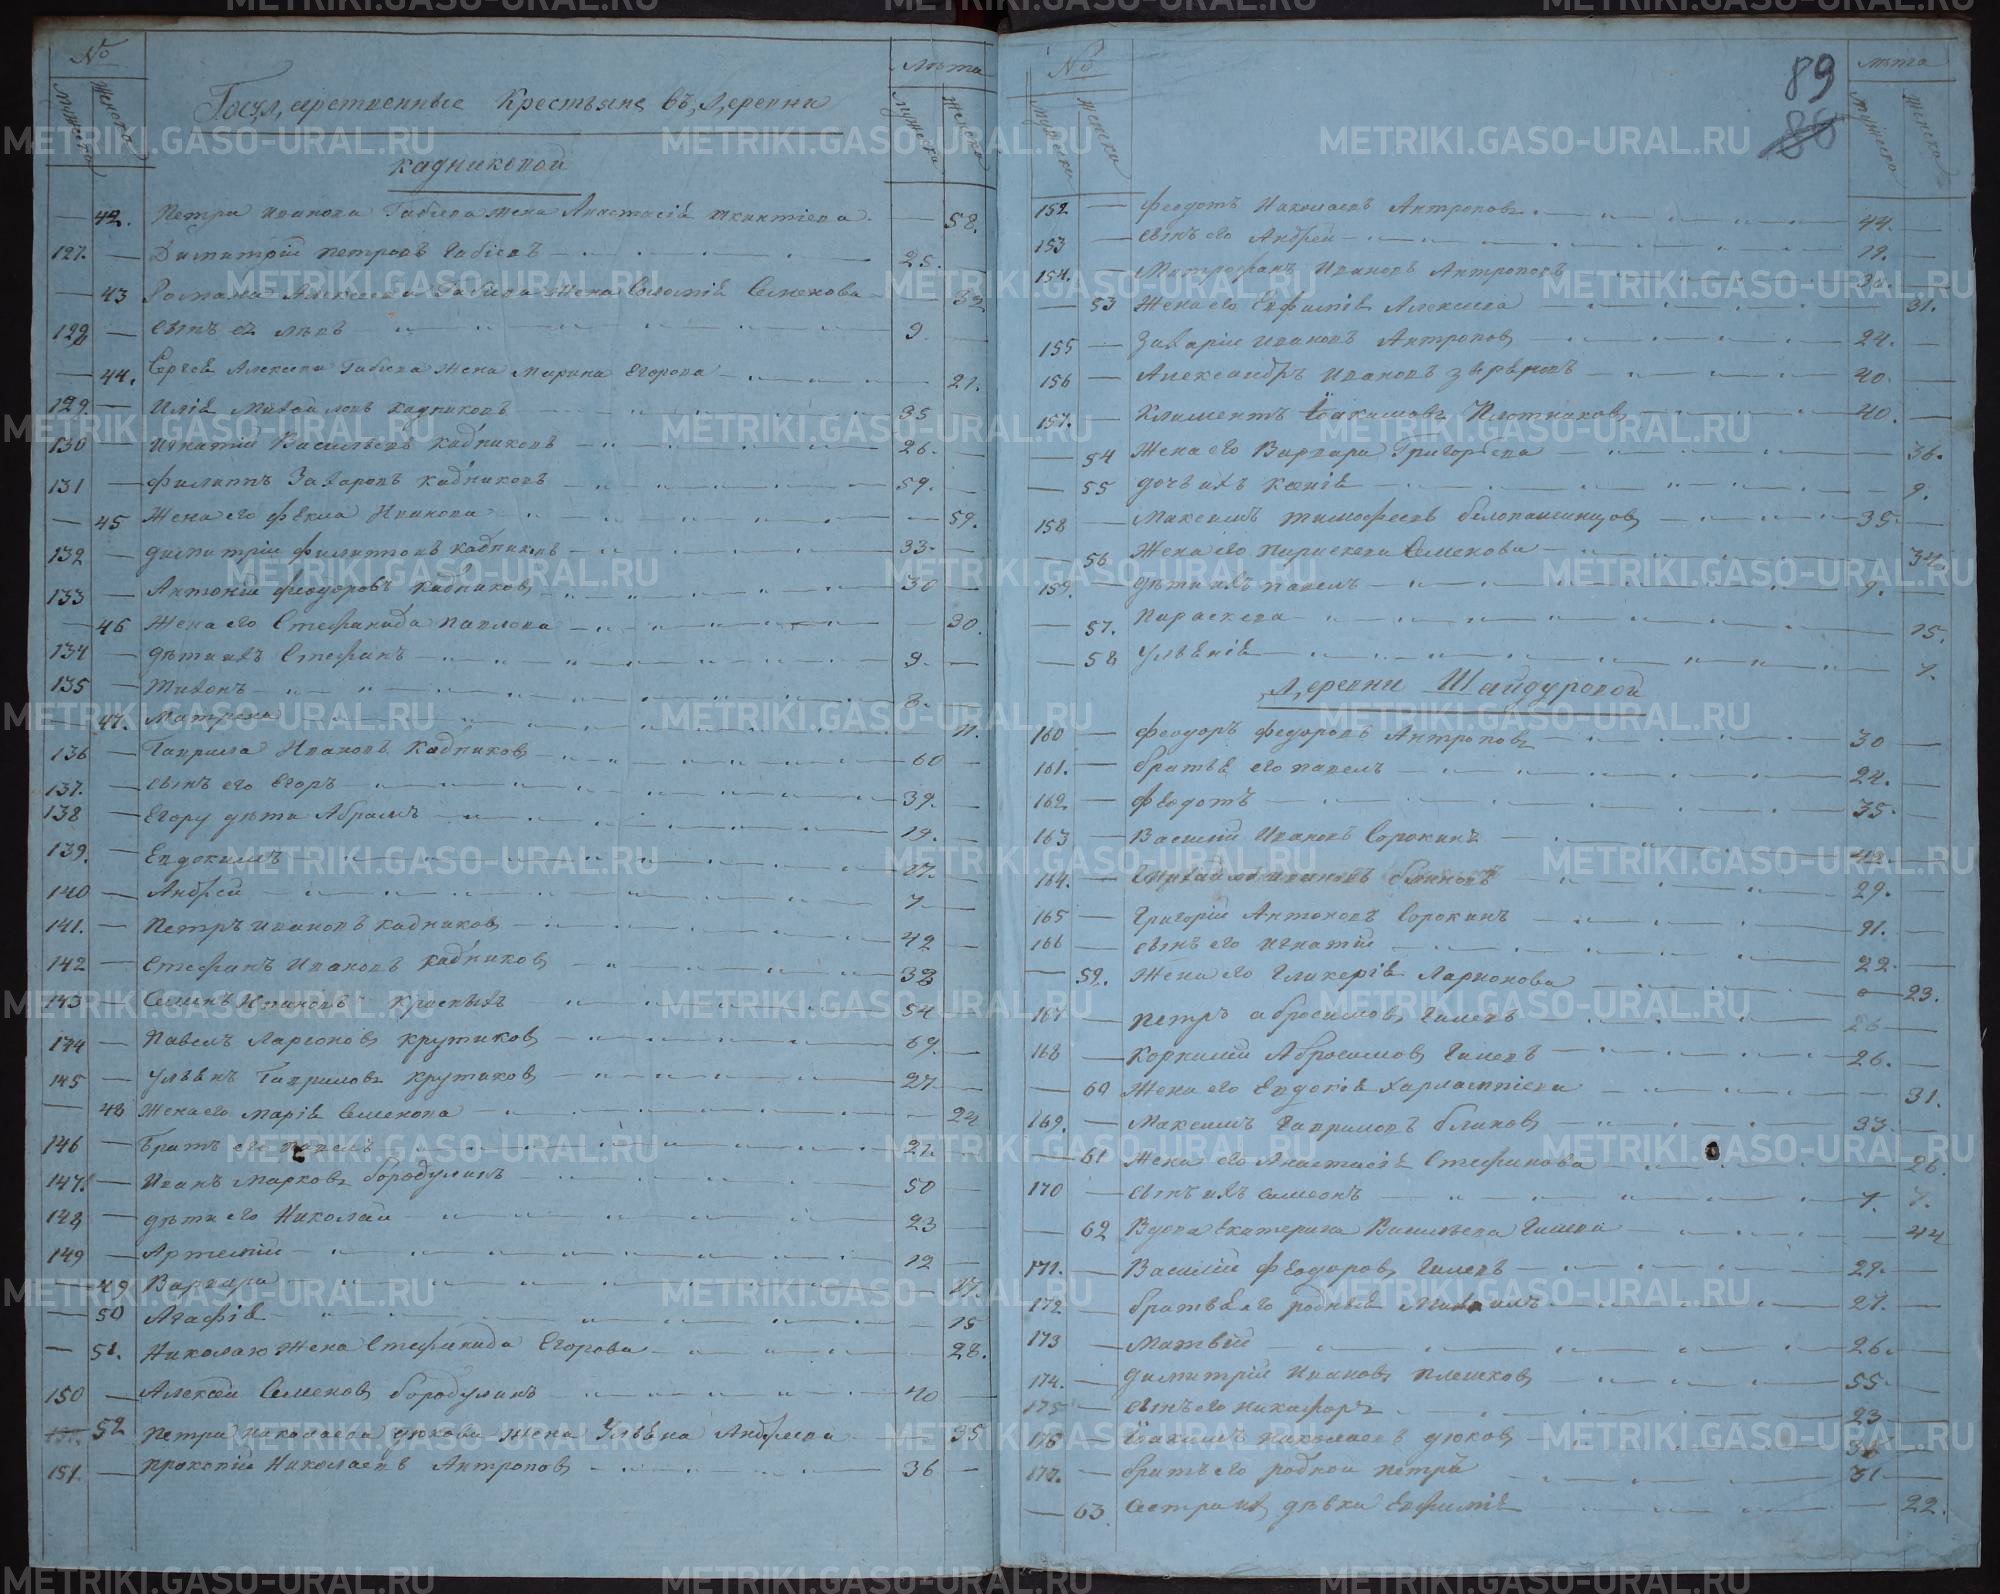 № лѣта
мужеска женска мужеска женска
Государственные Крестьяне въ Деревни
кадниковой
— 42. Петра Иванова Габиева жена Анастасія — 58.
127. — Димитрій Петровъ Габіевъ 25. —
— 43 Романа Алексеева Габиева жена Соломія Семенова — 32
128 — сынъ ея львъ 9. —
— 44. Сергея Алексеева Габиева жена Марина Егорова — 21.
129. — Илія Михайловъ кадниковъ 35
130 — Игнатій Васильевъ кадниковъ 26. —
131 — Филиппъ Захаровъ кадниковъ 59. —
— 45 Жена его Фекла Иванова — 59.
132 — Димитрій Филипповъ кадниковъ 33. —
133 — Антоній Феодоровъ кадниковъ 30 —
— 46 Жена его Стефанида Павлова — 30.
134 — дѣти ихъ Стефанъ 9. —
135 — Тихонъ 8. —
— 47. Матрена — 11.
136 — Гаврила Ивановъ Кадниковъ 60 —
137. — сынъ его Егоръ 39. —
138 — Егору дѣти Абрамъ 19. —
139. — Евдокимъ 17. —
140 — Андрей 7 —
141. — Петръ Ивановъ кадниковъ 42 —
142 — Стефанъ Ивановъ кадниковъ 38
143 — Семенъ Ивановъ Красныхъ 54 —
144 — Павелъ Ларіоновъ крутиковъ 69. —
145 — Ульянъ Гавриловъ крутиковъ 27 —
— 48 Жена его Марія Семенова — 24
146 — Братъ его Павелъ 21. —
147. — Иванъ Марковъ бородулинъ 50 —
148 — дѣти его Николай 23 —
149 — Артемій 12 —
— 49 Варвара — 17.
— 50 Агафія — 15
— 51. Николаю жена Стефанида Егорова — 28.
150 — Алексей Семеновъ бородулинъ 40 —
52 Петра Николаева дюкова жена Ульяна Андреева — 35
151. — Прокопій Николаевъ Антроповъ 36 —
№ 89 лѣта
86
мужеска женска мужеска женска
152 — Феодотъ Николаевъ Антроповъ 44. —
153 — сынъ его Андрей 19. —
154. — Митрофанъ Ивановъ Антроповъ 30. —
— 53 Жена его Евфимія Алексеева — 31.
155 — Захарій Ивановъ Антроповъ 24. —
156 — Александръ Ивановъ звѣревъ 40. —
157. — Климентъ Іоакимовъ Плотниковъ 40. —
— 54 Жена его Варвара Григорьева — 36.
— 55 дочь ихъ Ксенія — 9.
158 — Максимъ Тимофеевъ белопашинцовъ 35. —
— 56 Жена его Параскева Семенова — 34
159. — дѣти ихъ Павелъ 9. —
— 57. Параскева — 15.
— 58 Ульянія — 7.
Деревни Шайдуровой
160 — Феодоръ Федоровъ Антроповъ 30 —
161. — братья его Павелъ 24. —
162. — Феодотъ 35. —
163 — Василій Ивановъ Сорокинъ 42. —
164. — Михайло Ивановъ блиновъ 29. —
165 — Григорій Антоновъ Сорокинъ 91. —
166 — сынъ его Игнатій 22. —
— 59. Жена его Гликерія Ларионова — 23.
167 — Петръ Абросимовъ Гилевъ 26 —
168 — Корнилій Абросимовъ Гилевъ 26. —
— 60 Жена его Евдокія Харлампіева — 31.
169. — Максимъ Гавриловъ блиновъ 33. —
— 61 Жена его Анастасія Стефанова — 26.
170 — сынъ ихъ Симеонъ 7. 7.
— 62 Вдова Екатерина Васильева Гилева — 44
171. — Василій Феодоровъ Гилевъ 29. —
172. — братья его родные Михаилъ 27. —
173 — Матвій 26. —
174. — Димитрій Ивановъ Плешковъ 55. —
175 — сынъ его Никифоръ 23 —
176 — Іоакимъ Николаевъ дюковъ 38 —
177. — братъ его родной Петръ 31 —
— 63. сестра ихъ дѣвка Евфимія — 22.